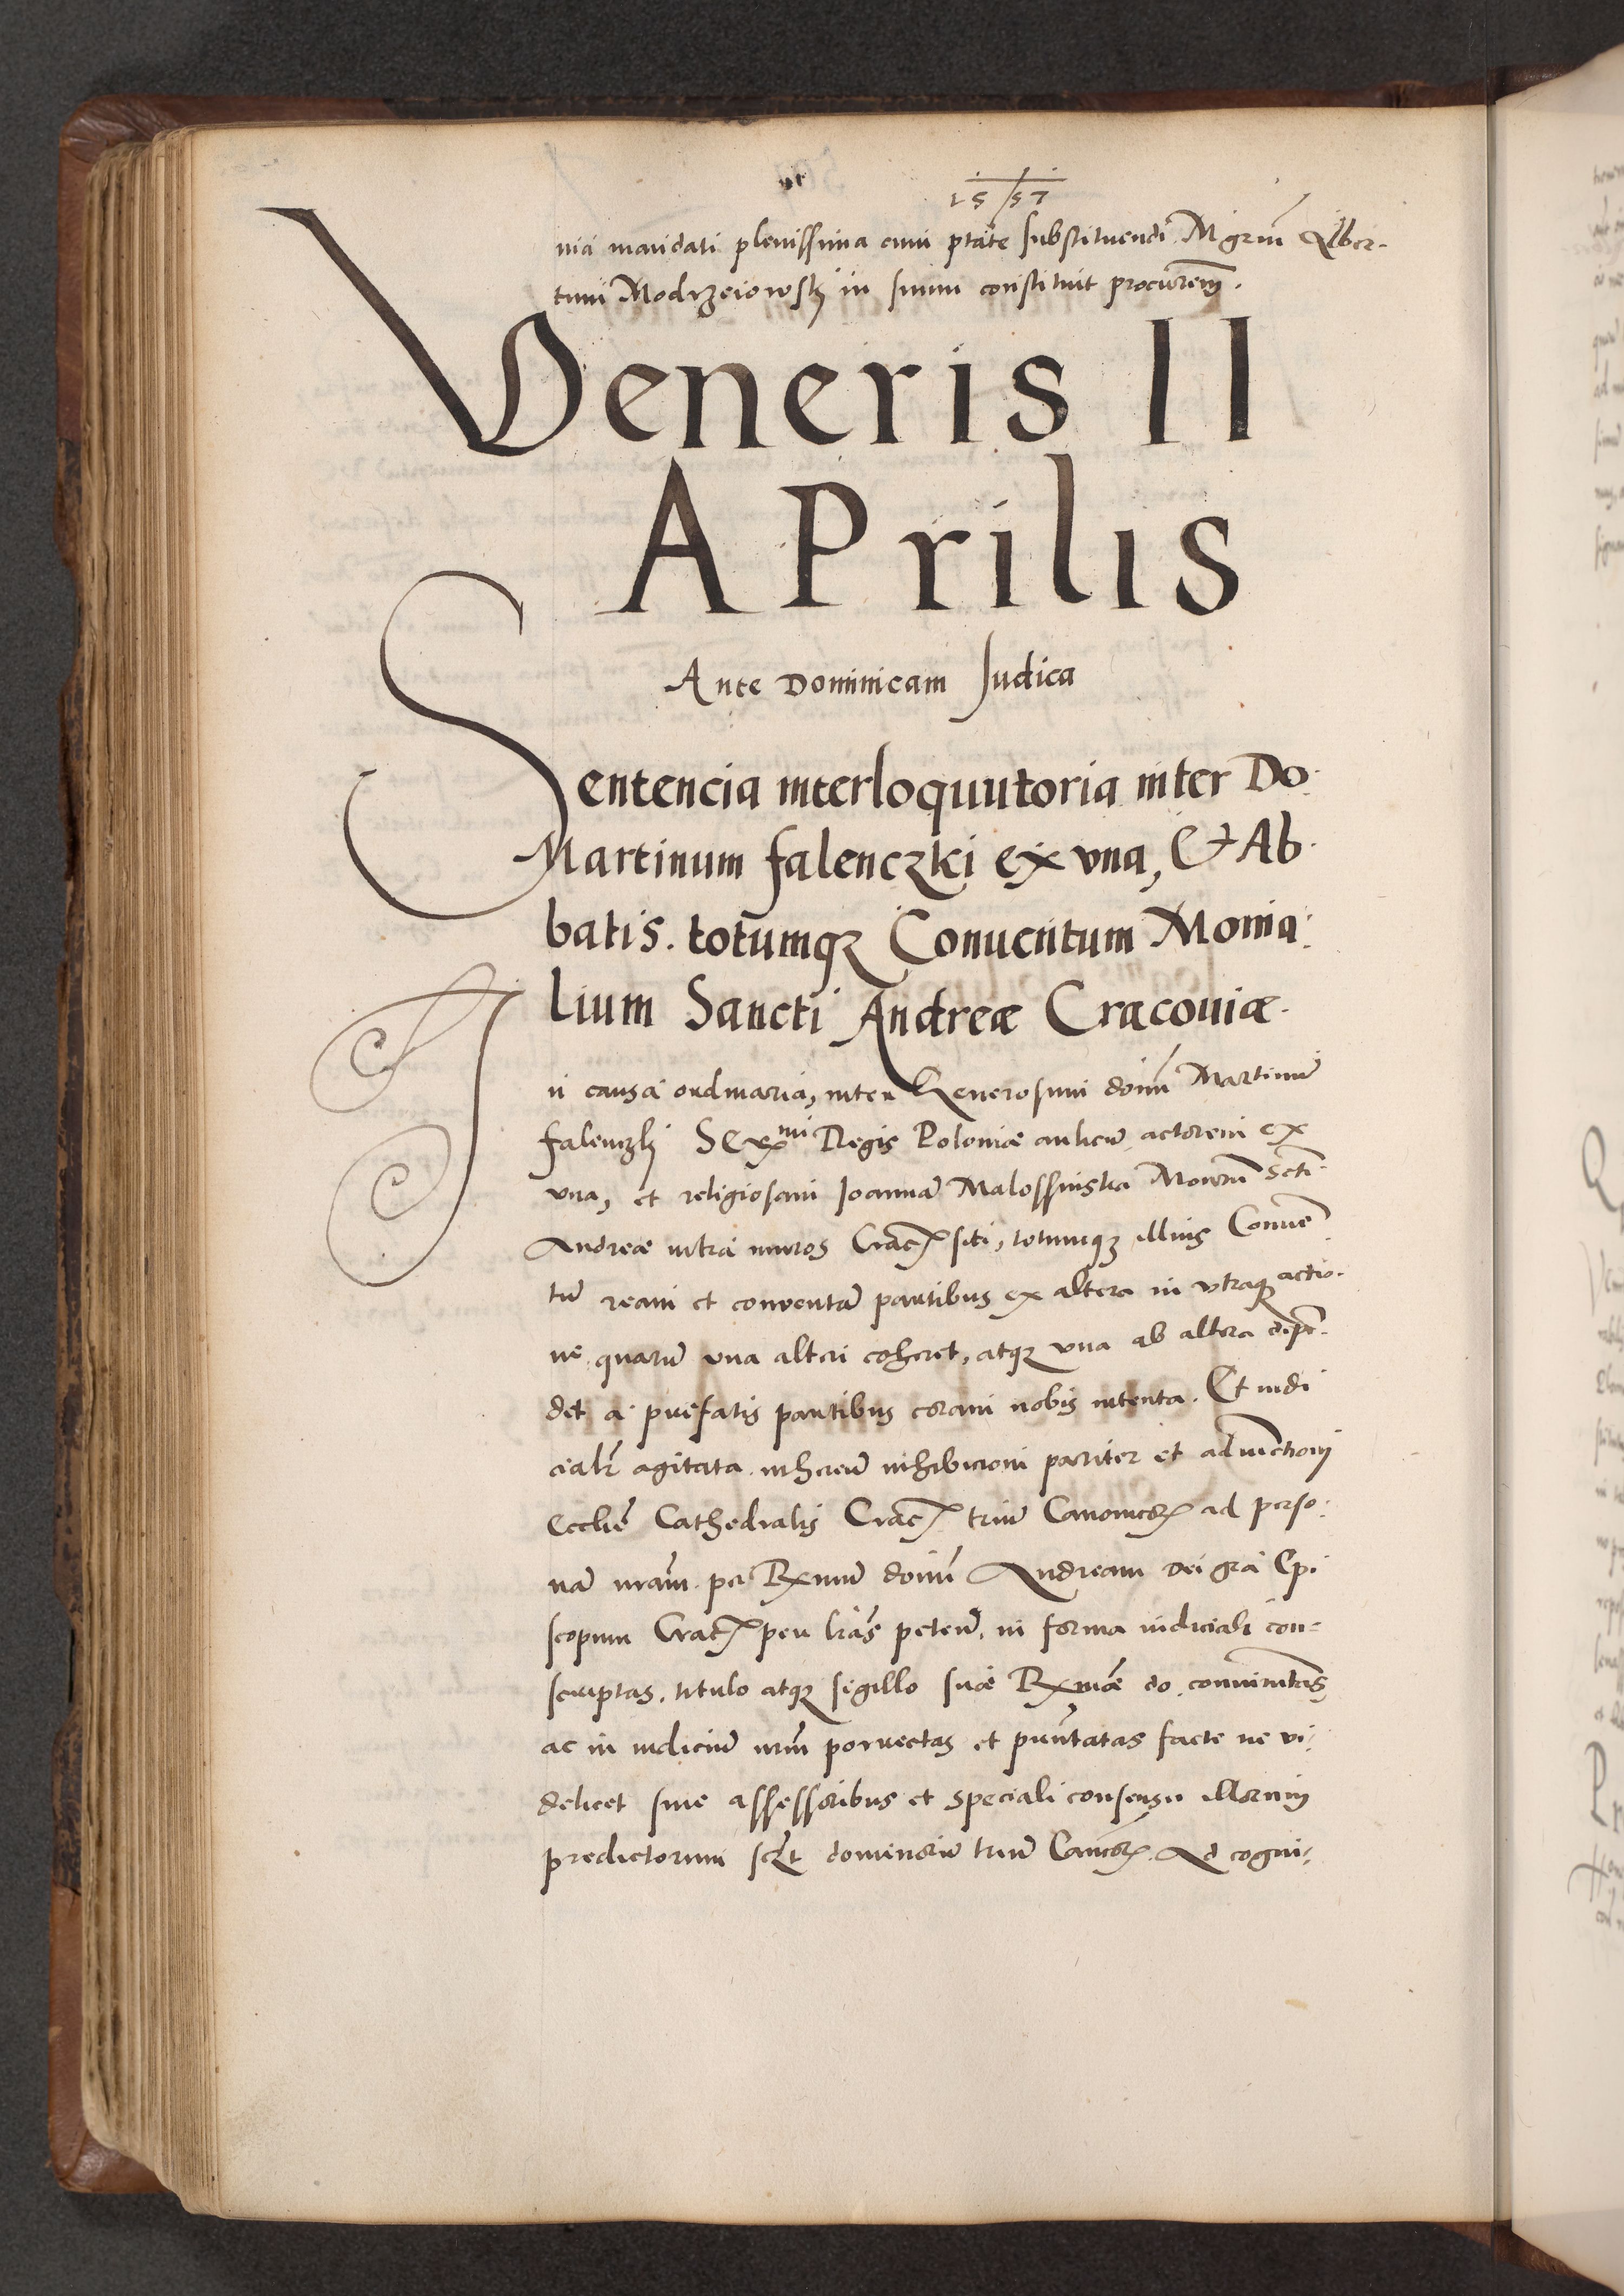 1557
nia mandati plenissima cum ptāte substituendi Mgrum Alber-
tum Modrzeiowskj in suum constituit procurem̄.
Veneris II
APrilis
Ante Dominicam Judica
Sentencia interloquutoria inter Do-
Martinum falenczki ex vna, & Ab-
batis. totumqꝫ Conuentum Monia-
lium Sancti Andreæ Cracouiæ.
In causa ordinaria, inter Generosum domū Martinū
falenczkj Sermi Regis Poloniæ aulicū actorem ex
vna, et religiosam Joannā Malossinska Monrm Scti
Andreæ intra muros Cracꝫ siti, totumqꝫ illius Conuē
tū ream et conuentā partibus ex altera in vtraqꝫ actio-
ne quarū vna alteri coheret, atqꝫ vna ab altera depē-
det a prefatis partibus coram nobis intenta. Et iudi
cialr agitata. inherēn inhibicioni pariter et adiunctioni
Ecclie Cathedralis Cracꝫ triū Canonicorꝫ ad perso-
nā nrām per Rxmum domū Andream Dei grā Epi
scopum Cracꝫ per lrās petēn. in forma iudiciali con-
scriptas, titulo atqꝫ sigillo suæ Rxmæ do. communitas
ac in iudiciū nrm porrectas et prūtatas facte ne vi-
delicet sine assessoribus et speciali consensu illorum
predictorum sclt dominorū triū Cancorꝫ. Ad cogni-